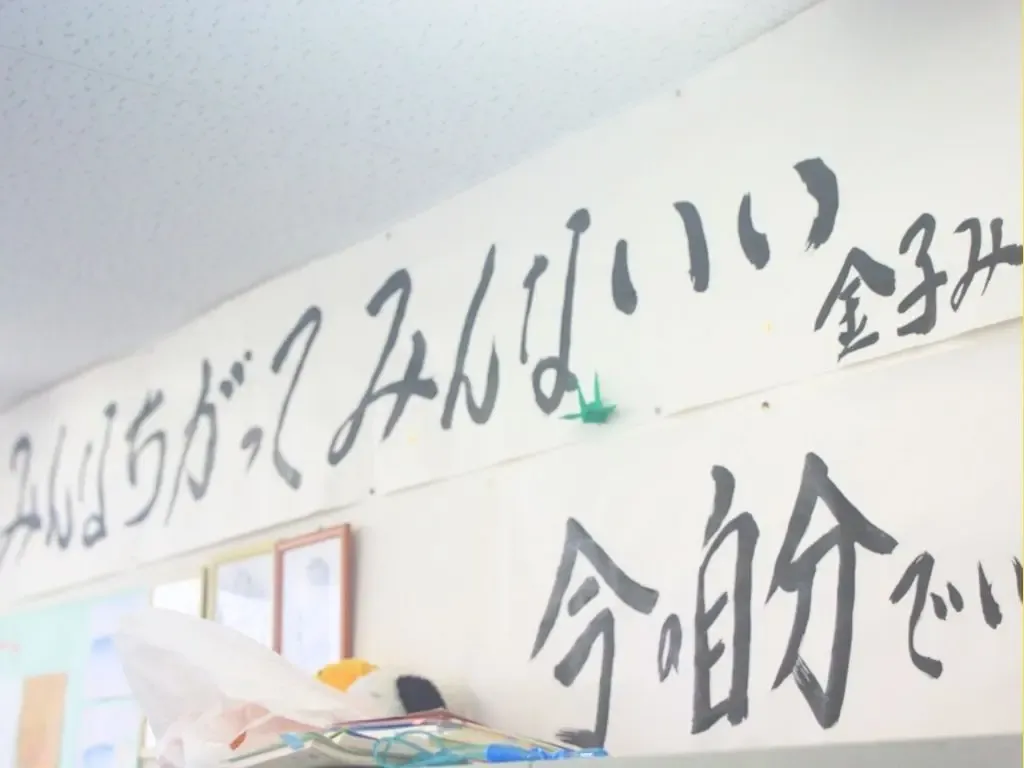 みんなちがってみんないい
金子み
今の自分でい